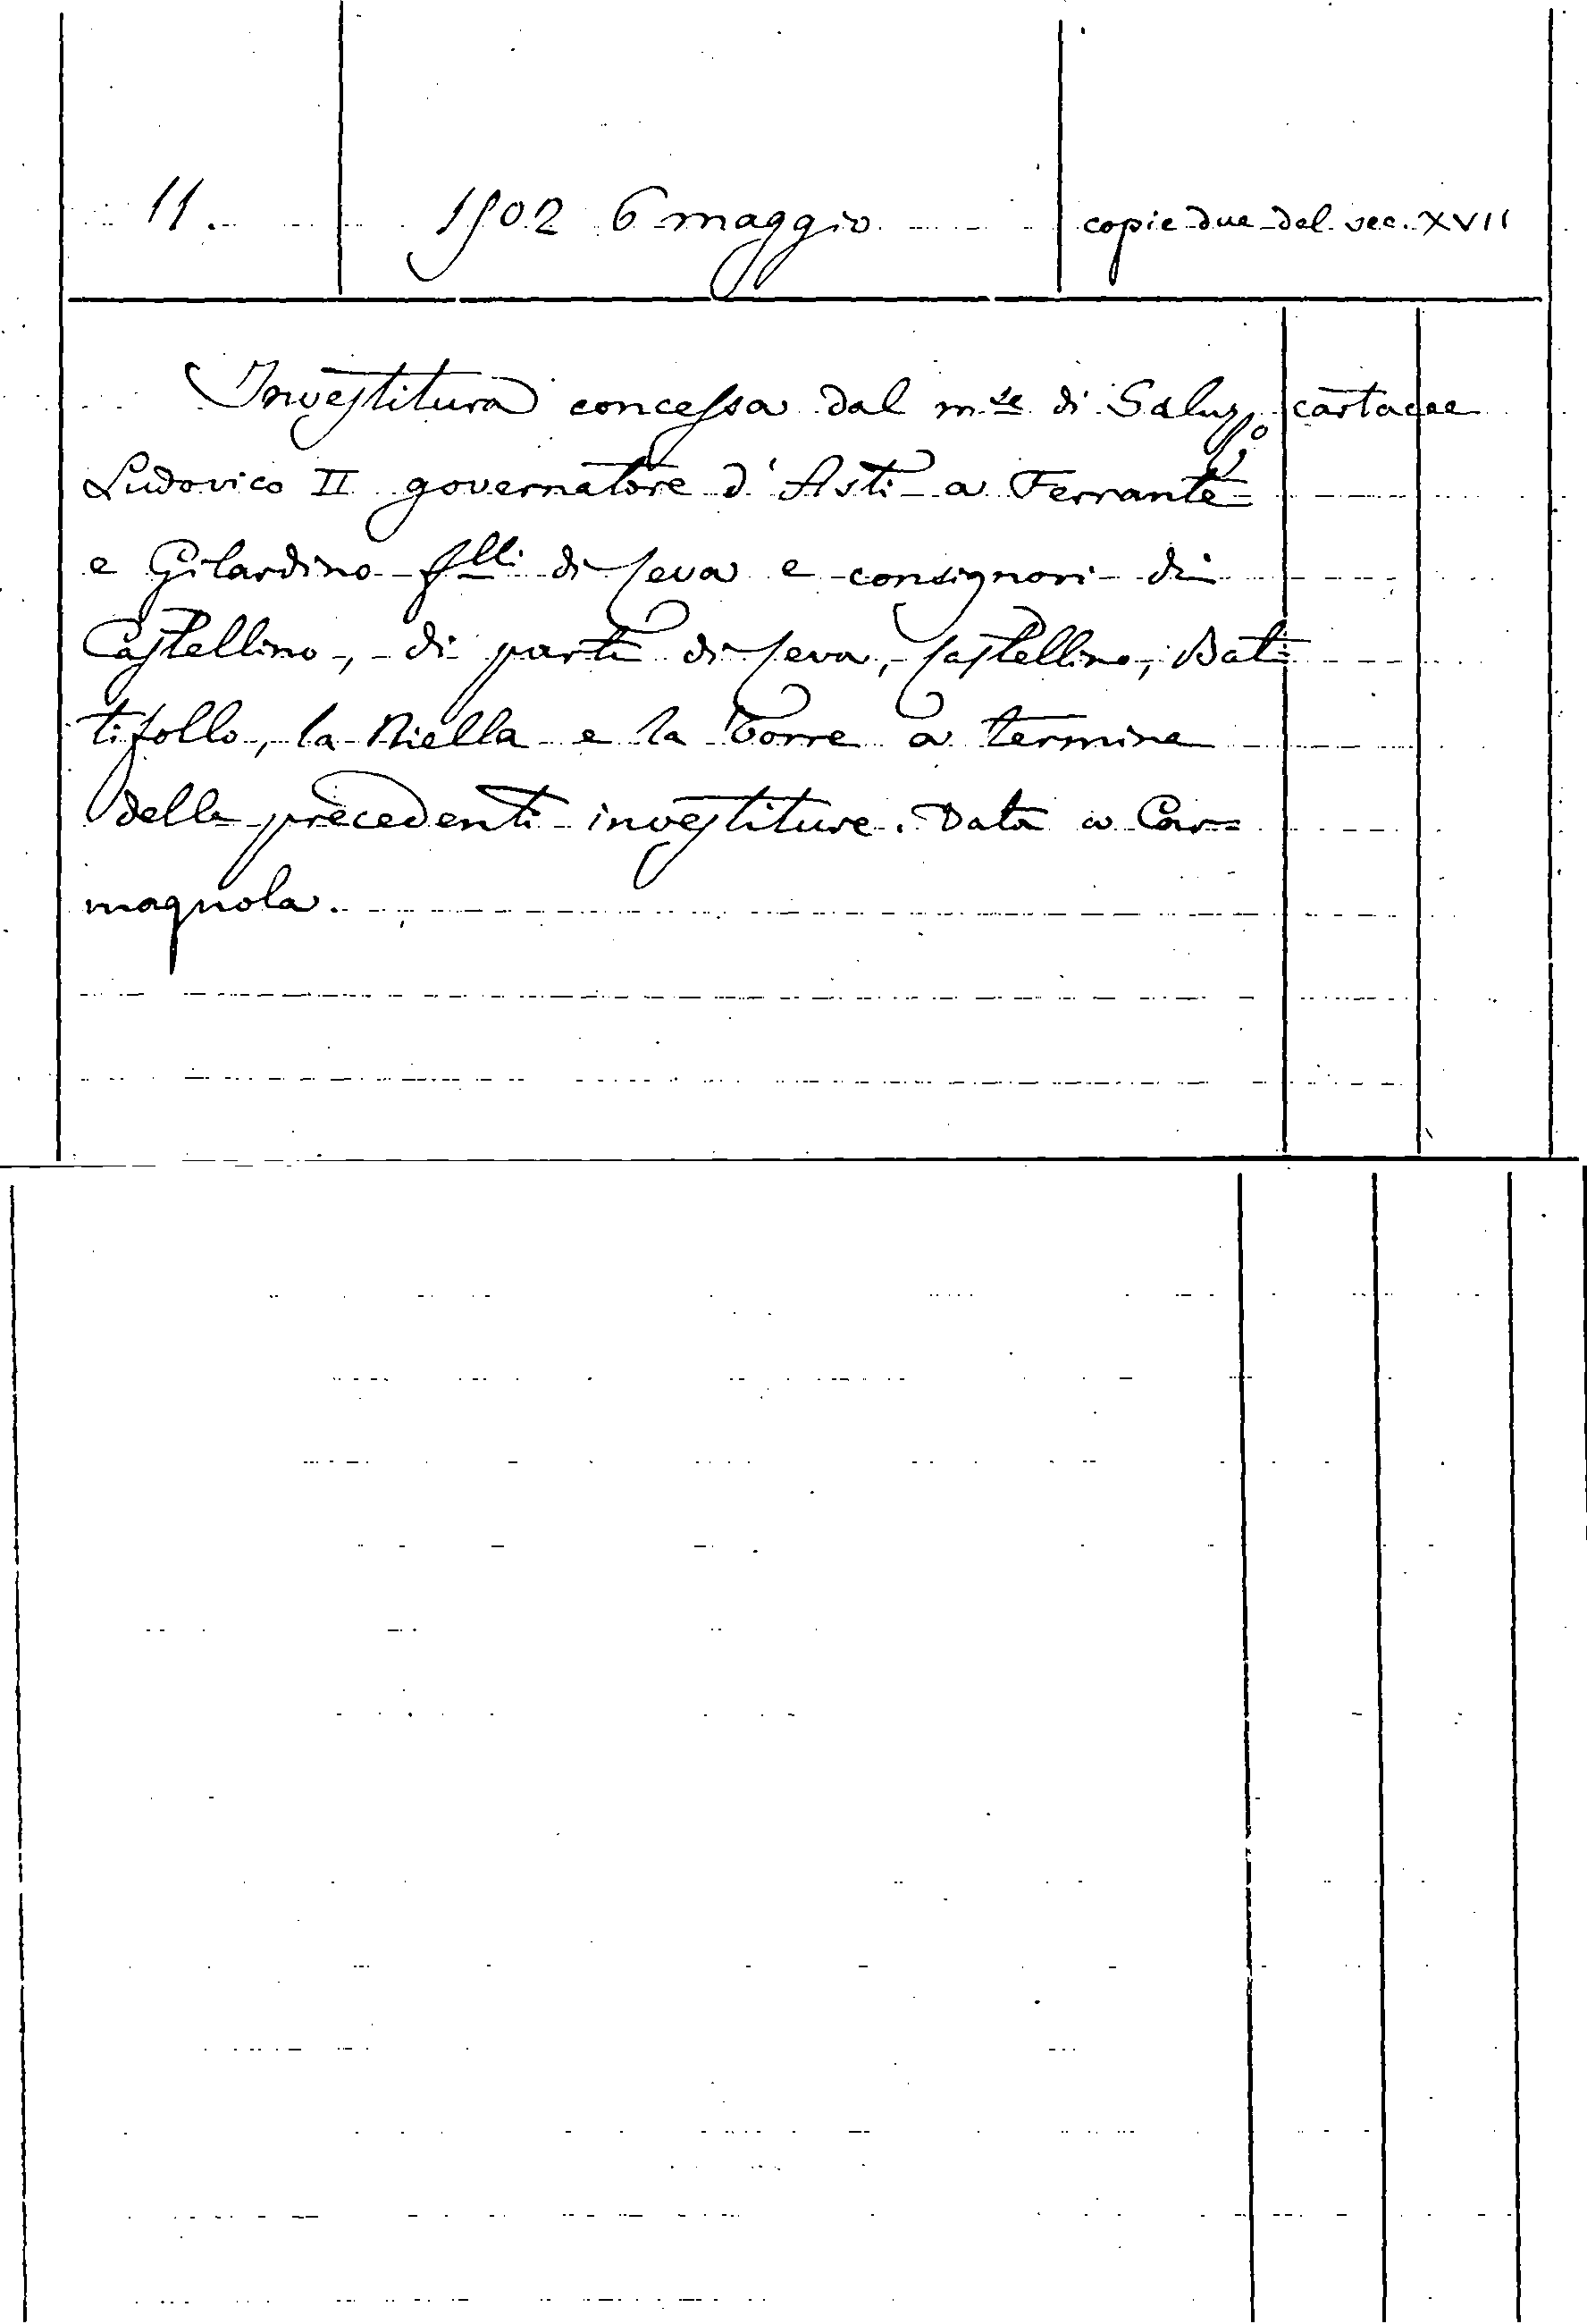 11. 1502 6 maggio copie due del sec. XVII
Investitura concessa dal m.se di Saluzzo cartacee
Ludovico II governatore d'Asti a Ferrante
e Gilardino f.lli di Ceva e consignori di
Castellino, di parte di Ceva, Castellino, Bat=
tifollo, la Niella e la Torre a termine
delle precedenti investiture. Data a Car=
magnola.